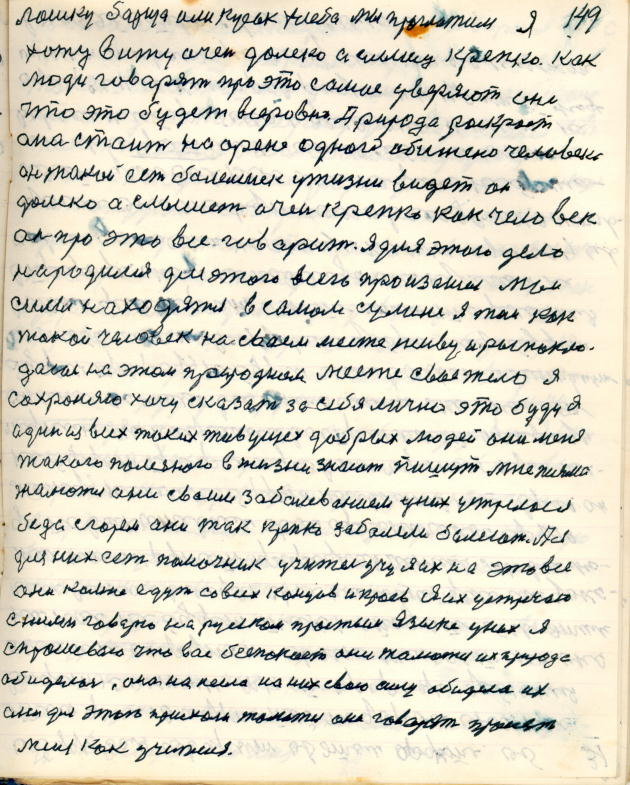 ложку борща или кусок хлеба мы проглотим Я 149
хожу вижу очен долеко а слышу крепко. Как
люди говарят про это самое уверяют они
что это будет всеровно. Природа раскроет
она стаит на оране одного обижено человека
он такой ест болеший у жизни видет он
долеко а слышет очен крепко как человек
он про это все говарит. Я для этого дело
народился для этого всего произашел Мои
силы находятся в самом сумене я там как
такой человек на своем месте живу и распокла-
даюс на этом природном месте свое тело я
сохроняю хочу сказат за себя лично это буду я
адин из всех таких живущех добрых людей они меня
такого полезного в жизни знают пишут мне писма
жалются они своим заболеванием у них устрелося
беда с горем они так крепко заболели болеют. А я
для них ест помочник учител учу я их на это все
они ко мне едут со всех концов и краев я их устречаю
с ними говарю на руском простым языке у них я
спрошеваю что вас беспокоит они жалются их природа
обиделас, она напала на них свою силу обидела их
они для этого приехали жалются они говарят просят
меня как учителя.